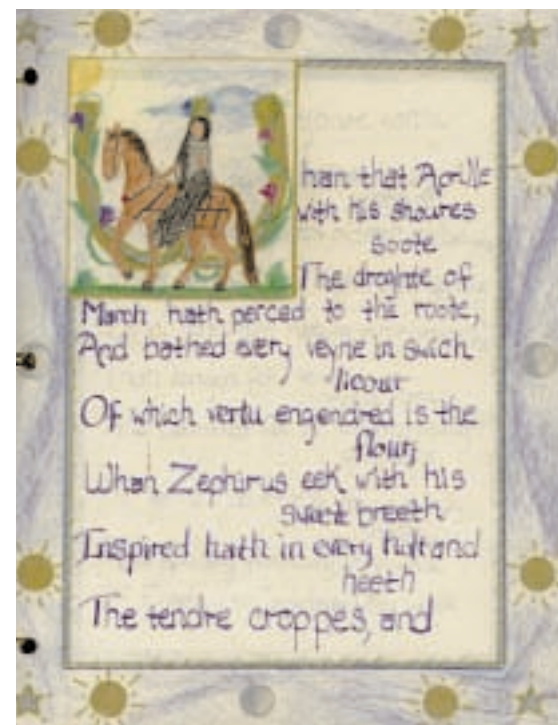 Whan that Aprille
with his shoures
soote
The droghte of
March hath perced to the roote,
And bathed every veyne in swich
licour
Of which vertu engendred is the
flour;
Whan Zephirus eek with his
swete breeth
Inspired hath in every holt and
heeth
The tendre croppes, and